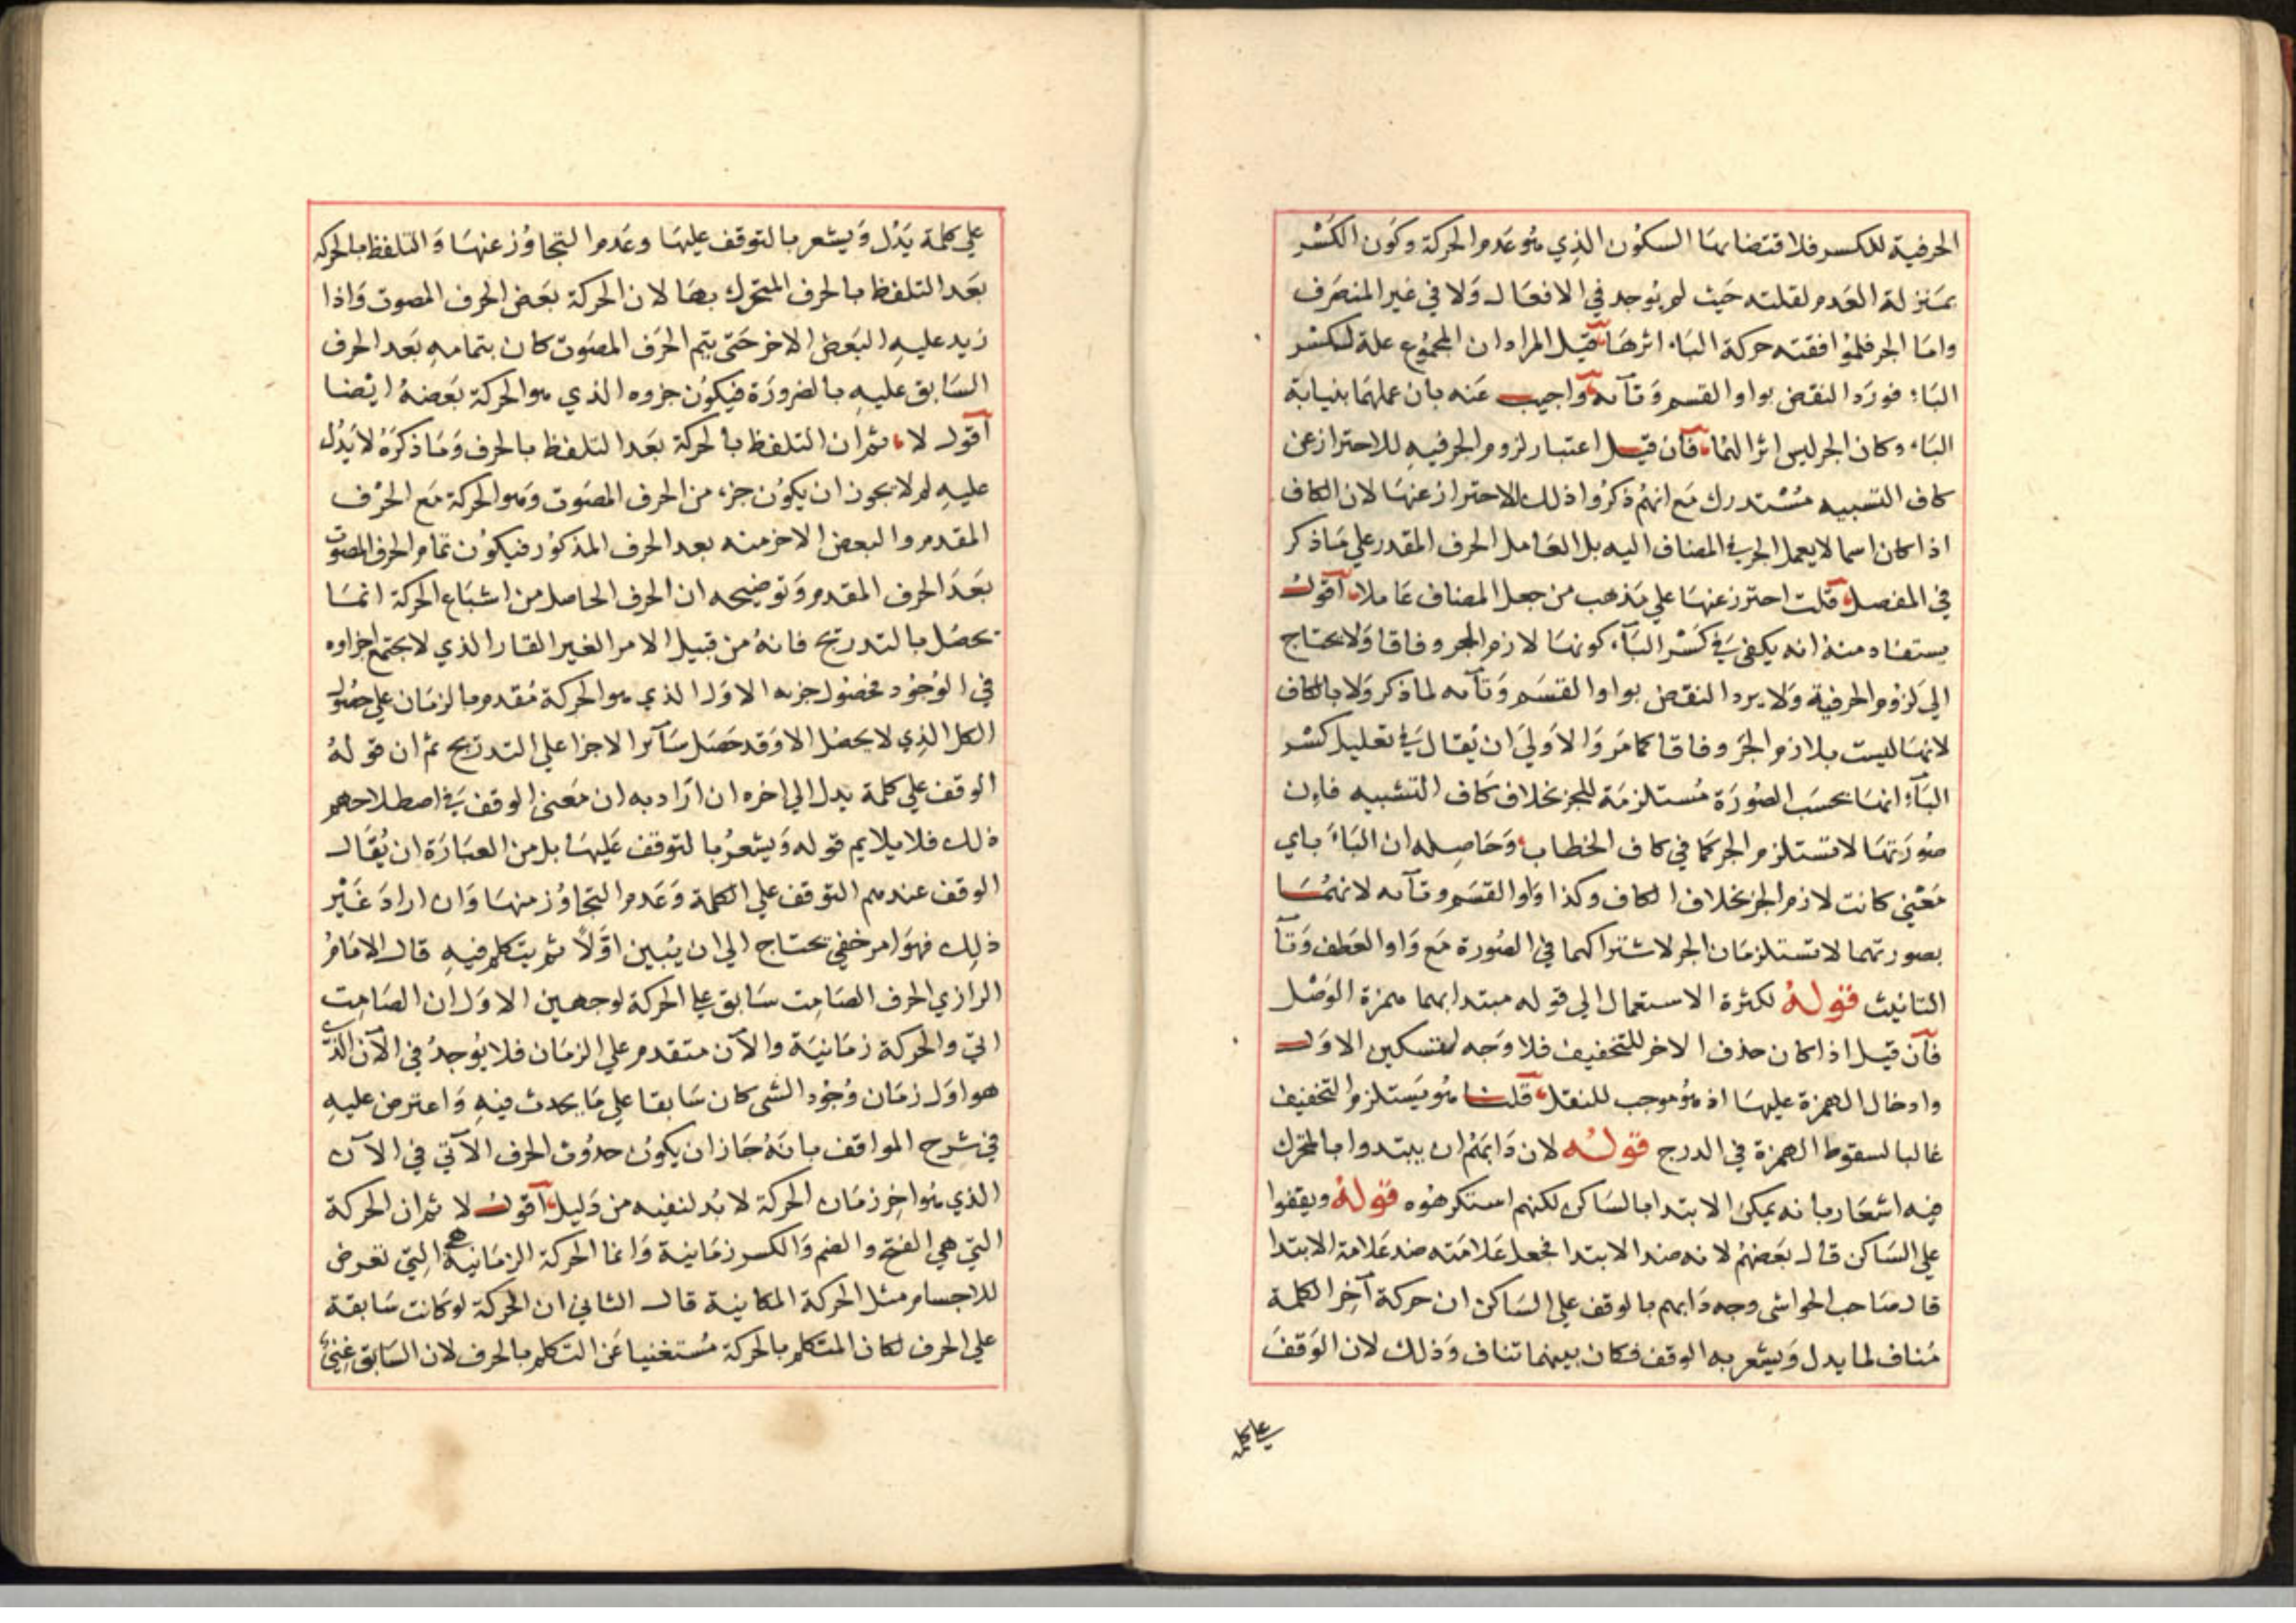 الحرفية للكسر فلاقتضائها السكون الذي هو عدم الحركة وكون الكسر
بمنزلة العدم لقلته حيث لم يوجد في الافعال ولا في غير المنصرف
واما الجر فلموافقته حركة الباء اثرها قيل المراد ان المجموع علة لكسر
الباء فورد النقض بواو القسم وتآئه واجيب عنه بان عملهما بنيابة
الباء وكان الجر ليس اثرا لهما فان قيل اعتبار لزوم الجر فيه للاحتراز عن
كاف التشبيه مستدرك مع انهم ذكروا ذلك الاحتراز عنها لان الكاف
اذا كان اسما لا يعمل الجر في المضاف اليه بل العامل الحرف المقدر على ما ذكر
في المفصل قلت احترز عنها على مذهب من جعل المضاف عاملا اقول
يستفاد منه انه يكفي في كسر البآء كونها لازم الجر وفاقا ولا يحتاج
الى لزوم الحرفية ولا يرد النقض بواو القسم وتآئه لما ذكر ولا بالكاف
لانها ليست بلازم الجر وفاقا كما مر والاولى ان يقال في تعليل كسر
البآء انها بحسب الصورة مستلزمة للجر بخلاف كاف التشبيه فان
صورتها لا تستلزم الجر كما في كاف الخطاب وحاصله ان الباء باي
معنى كانت لازم الجر بخلاف الكاف وكذا واو القسم وتآئه لانهما
بصورتهما لا تستلزمان الجر لاشتراكهما في الصورة مع واو العطف وتآ
التانيث قوله لكثرة الاستعمال الى قوله مبتدا بهما همزة الوصل
فان قيل اذا كان حذف الاخر للتخفيف فلا وجه لتسكين الاول
وادخال الهمزة عليها اذ هو موجب للثقل قلنا هو يستلزم التخفيف
غالبا لسقوط الهمزة في الدرج قوله لان دابهم ان يبتدوا بالمتحرك
فيه اشعار بانه يمكن الابتدا بالساكن لكنهم استكرهوه قوله ويقفوا
على الساكن قال بعضهم لانه ضد الابتدا فجعل علامته ضد علامة الابتدا
قال صاحب الحواشى وجه دابهم بالوقف على الساكن ان حركة آخر الكلمة
مناف لما يدل ويشعر به الوقف فكان بينهما تناف وذلك لان الوقف
على كلمة
على كلمة يدل ويشعر بالتوقف عليها وعدم التجاوز عنها والتلفظ بالحركة
بعد التلفظ بالحرف المتحرك بها لان الحركة بعض الحرف المصوت واذا
زيد عليه البعض الاخر حتى يتم الحرف المصوت كان بتمامه بعد الحرف
السابق عليه بالضرورة فيكون جزوه الذي هو الحركة بعضه ايضا
اقول لا ثم ان التلفظ بالحركة بعد التلفظ بالحرف وما ذكره لا يدل
عليه لم لا يجوز ان يكون جزء من الحرف المصوت وهو الحركة مع الحرف
المقدم والبعض الاخر منه بعد الحرف المذكور فيكون تمام الحرف المصوت
بعد الحرف المقدم وتوضيحه ان الحرف الحاصل من اشباع الحركة انما
يحصل بالتدريج فانه من قبيل الامر الغير القار الذي لا يجتمع اجزاوه
في الوجود فحصول جزء الاول الذي هو الحركة مقدم بالزمان على حصول
الكل الذي لا يحصل الا وقد حصل سآئر الاجزا على التدريج ثم ان قوله
الوقف على كلمة يدل الى اخره ان اراد به ان معنى الوقف في اصطلاحهم
ذلك فلا يلايم قوله ويشعر بالتوقف عليها بل من العبارة ان يقال
الوقف عندهم التوقف على الكلمة وعدم التجاوز منها وان اراد غير
ذلك فهو امر خفي يحتاج الى ان يبين اولا ثم يتكلم فيه قال الامام
الرازي الحرف الصامت سابق على الحركة لوجهين الاول ان الصامت
اني والحركة زمانية والآن متقدم على الزمان فلا يوجد في الآن الذي
هو اول زمان وجود الشى كان سابقا على ما يحدث فيه واعترض عليه
في شرح المواقف بانه جاز ان يكون حدوث الحرف الآتي في الآن
الذي هو اخر زمان الحركة لا بد لنفيه من دليل اقول لا ثم ان الحركة
التي هي الفتح والضم والكسر زمانية وانما الحركة الزمانية هي التي تعرض
للاجسام مثل الحركة المكانية قال الثاني ان الحركة لو كانت سابقة
على الحرف لكان المتكلم بالحركة مستغنيا عن التكلم بالحرف لان السابق غني